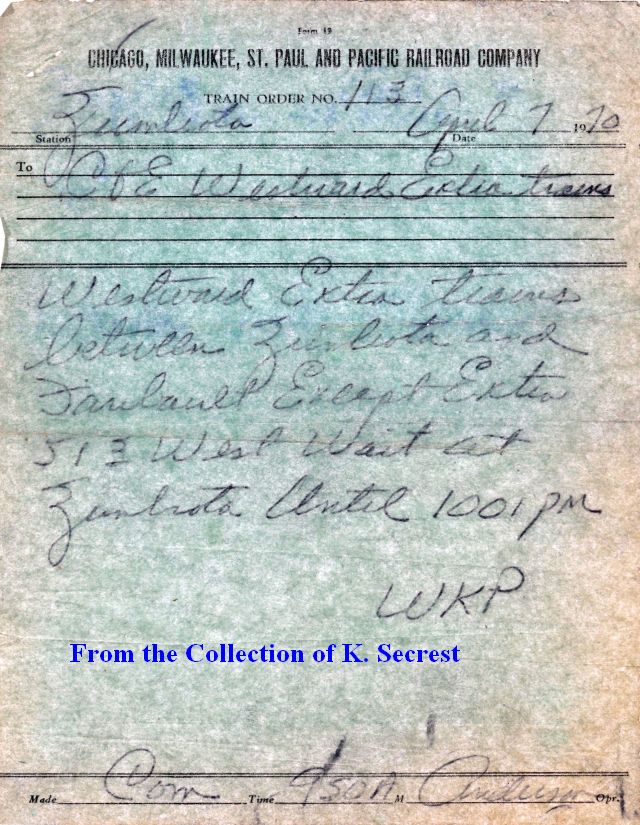 Form 19
CHICAGO, MILWAUKEE, ST. PAUL AND PACIFIC RAILROAD COMPANY
TRAIN ORDER NO. 113
Zumbrota April 7 1970
Station Date
To C&E Westward Extra trains
Westward Extra trains
between Zumbrota and
Faribault Except Extra
513 West Wait at
Zumbrota Until 1001 PM
WKP
From the Collection of K. Secrest
Made Com Time M Anderson Opr.